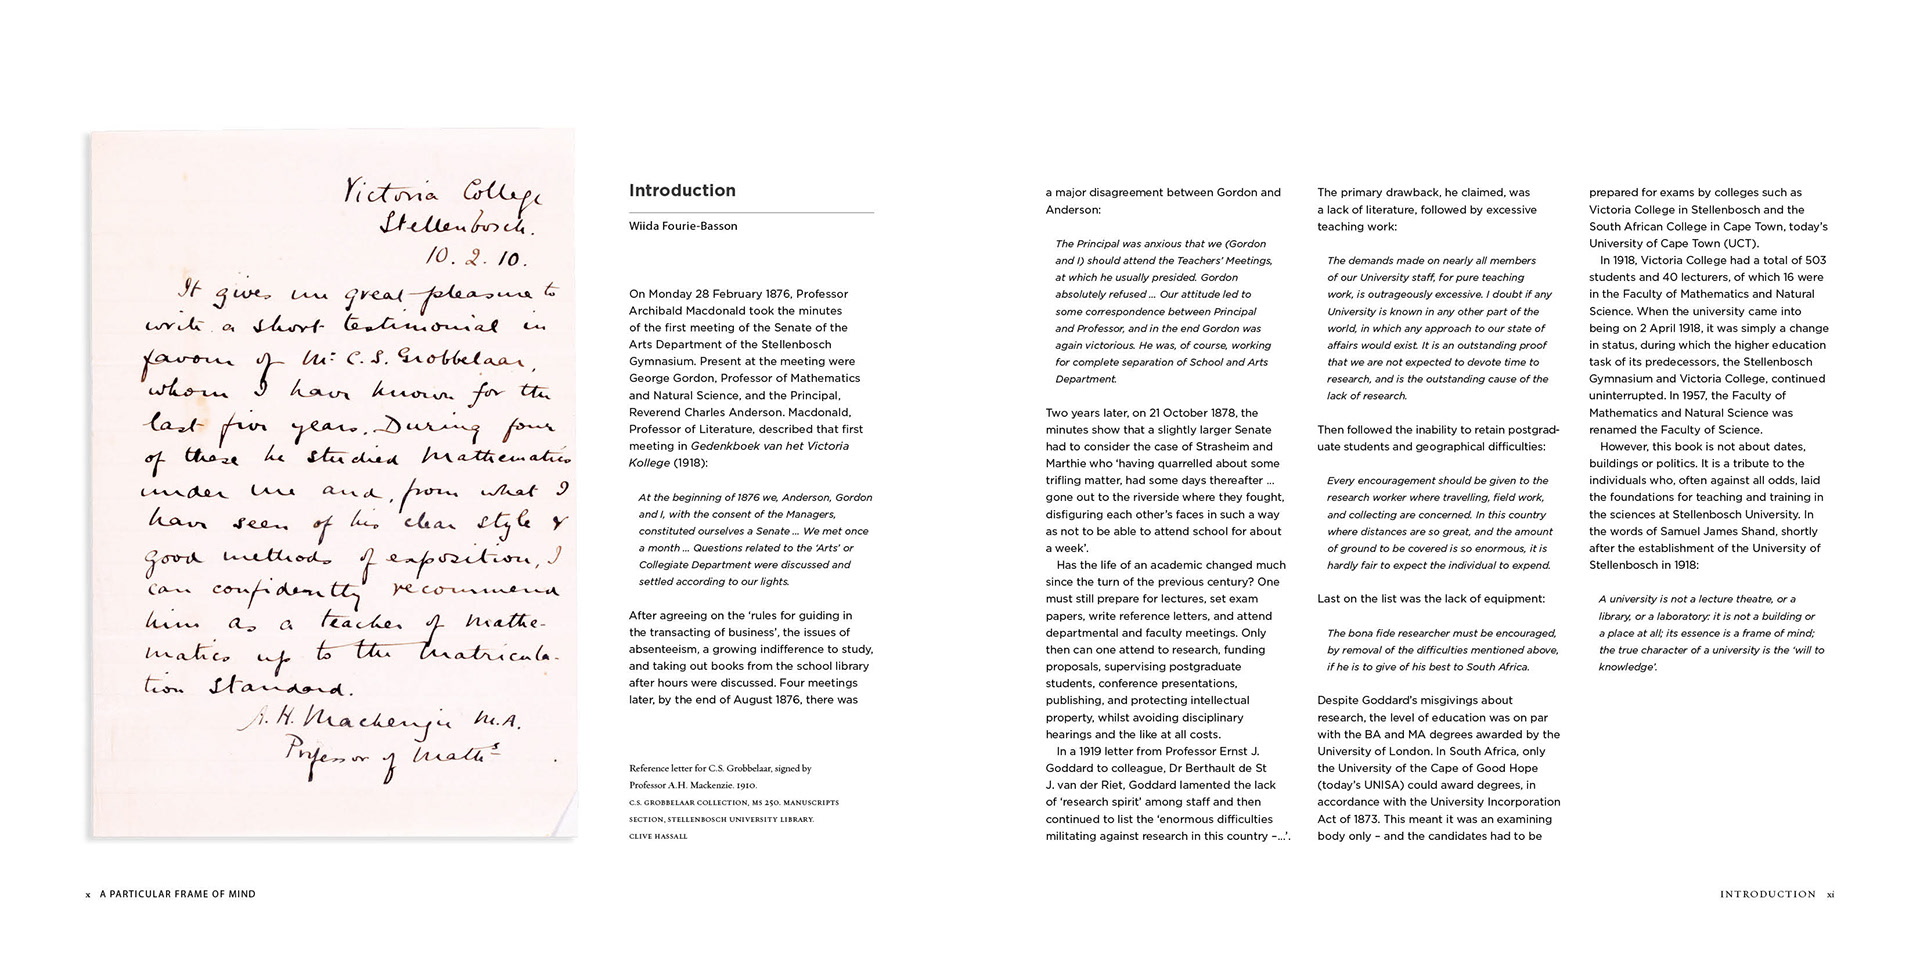 Victoria College
Stellenbosch.
10. 2. 10.
It gives me great pleasure to
write a short testimonial in
favour of Mr. C. S. Grobbelaar,
whom I have known for the
last five years. During four
of these he studied Mathematics
under me and, from what I
have seen of his clear style &
good methods of exposition, I
can confidently recommend
him as a teacher of Mathe-
matics up to the Matricula-
tion Standard.
A. H. Mackenzie M.A.
Professor of Maths
Introduction
Wiida Fourie-Basson
On Monday 28 February 1876, Professor
Archibald Macdonald took the minutes
of the first meeting of the Senate of the
Arts Department of the Stellenbosch
Gymnasium. Present at the meeting were
George Gordon, Professor of Mathematics
and Natural Science, and the Principal,
Reverend Charles Anderson. Macdonald,
Professor of Literature, described that first
meeting in Gedenkboek van het Victoria
Kollege (1918):
At the beginning of 1876 we, Anderson, Gordon
and I, with the consent of the Managers,
constituted ourselves a Senate ... We met once
a month ... Questions related to the ‘Arts’ or
Collegiate Department were discussed and
settled according to our lights.
After agreeing on the ‘rules for guiding in
the transacting of business’, the issues of
absenteeism, a growing indifference to study,
and taking out books from the school library
after hours were discussed. Four meetings
later, by the end of August 1876, there was
Reference letter for C.S. Grobbelaar, signed by
Professor A.H. Mackenzie. 1910.
C.S. GROBBELAAR COLLECTION, MS 250. MANUSCRIPTS
SECTION, STELLENBOSCH UNIVERSITY LIBRARY.
CLIVE HASSALL
x A PARTICULAR FRAME OF MIND
a major disagreement between Gordon and
Anderson:
The Principal was anxious that we (Gordon
and I) should attend the Teachers’ Meetings,
at which he usually presided. Gordon
absolutely refused ... Our attitude led to
some correspondence between Principal
and Professor, and in the end Gordon was
again victorious. He was, of course, working
for complete separation of School and Arts
Department.
Two years later, on 21 October 1878, the
minutes show that a slightly larger Senate
had to consider the case of Strasheim and
Marthie who ‘having quarrelled about some
trifling matter, had some days thereafter ...
gone out to the riverside where they fought,
disfiguring each other’s faces in such a way
as not to be able to attend school for about
a week’.
Has the life of an academic changed much
since the turn of the previous century? One
must still prepare for lectures, set exam
papers, write reference letters, and attend
departmental and faculty meetings. Only
then can one attend to research, funding
proposals, supervising postgraduate
students, conference presentations,
publishing, and protecting intellectual
property, whilst avoiding disciplinary
hearings and the like at all costs.
In a 1919 letter from Professor Ernst J.
Goddard to colleague, Dr Berthault de St
J. van der Riet, Goddard lamented the lack
of ‘research spirit’ among staff and then
continued to list the ‘enormous difficulties
militating against research in this country –...’.
The primary drawback, he claimed, was
a lack of literature, followed by excessive
teaching work:
The demands made on nearly all members
of our University staff, for pure teaching
work, is outrageously excessive. I doubt if any
University is known in any other part of the
world, in which any approach to our state of
affairs would exist. It is an outstanding proof
that we are not expected to devote time to
research, and is the outstanding cause of the
lack of research.
Then followed the inability to retain postgrad-
uate students and geographical difficulties:
Every encouragement should be given to the
research worker where travelling, field work,
and collecting are concerned. In this country
where distances are so great, and the amount
of ground to be covered is so enormous, it is
hardly fair to expect the individual to expend.
Last on the list was the lack of equipment:
The bona fide researcher must be encouraged,
by removal of the difficulties mentioned above,
if he is to give of his best to South Africa.
Despite Goddard’s misgivings about
research, the level of education was on par
with the BA and MA degrees awarded by the
University of London. In South Africa, only
the University of the Cape of Good Hope
(today’s UNISA) could award degrees, in
accordance with the University Incorporation
Act of 1873. This meant it was an examining
body only – and the candidates had to be
prepared for exams by colleges such as
Victoria College in Stellenbosch and the
South African College in Cape Town, today’s
University of Cape Town (UCT).
In 1918, Victoria College had a total of 503
students and 40 lecturers, of which 16 were
in the Faculty of Mathematics and Natural
Science. When the university came into
being on 2 April 1918, it was simply a change
in status, during which the higher education
task of its predecessors, the Stellenbosch
Gymnasium and Victoria College, continued
uninterrupted. In 1957, the Faculty of
Mathematics and Natural Science was
renamed the Faculty of Science.
However, this book is not about dates,
buildings or politics. It is a tribute to the
individuals who, often against all odds, laid
the foundations for teaching and training in
the sciences at Stellenbosch University. In
the words of Samuel James Shand, shortly
after the establishment of the University of
Stellenbosch in 1918:
A university is not a lecture theatre, or a
library, or a laboratory: it is not a building or
a place at all; its essence is a frame of mind;
the true character of a university is the ‘will to
knowledge’.
INTRODUCTION xi